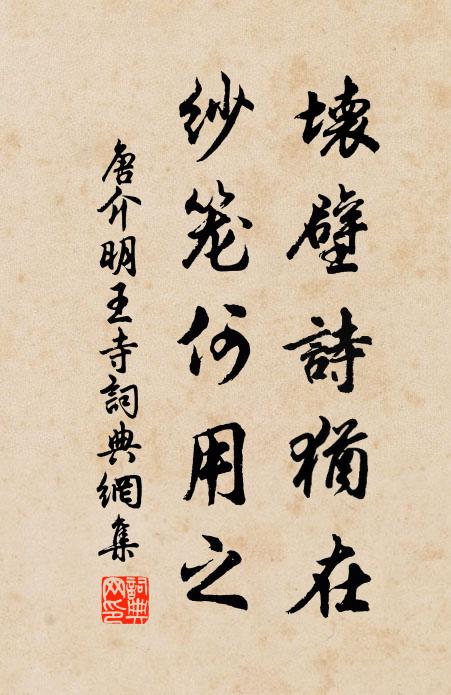 壞壁詩猶在
紗笼何用之
唐介明王寺詞典網集
詞典网印